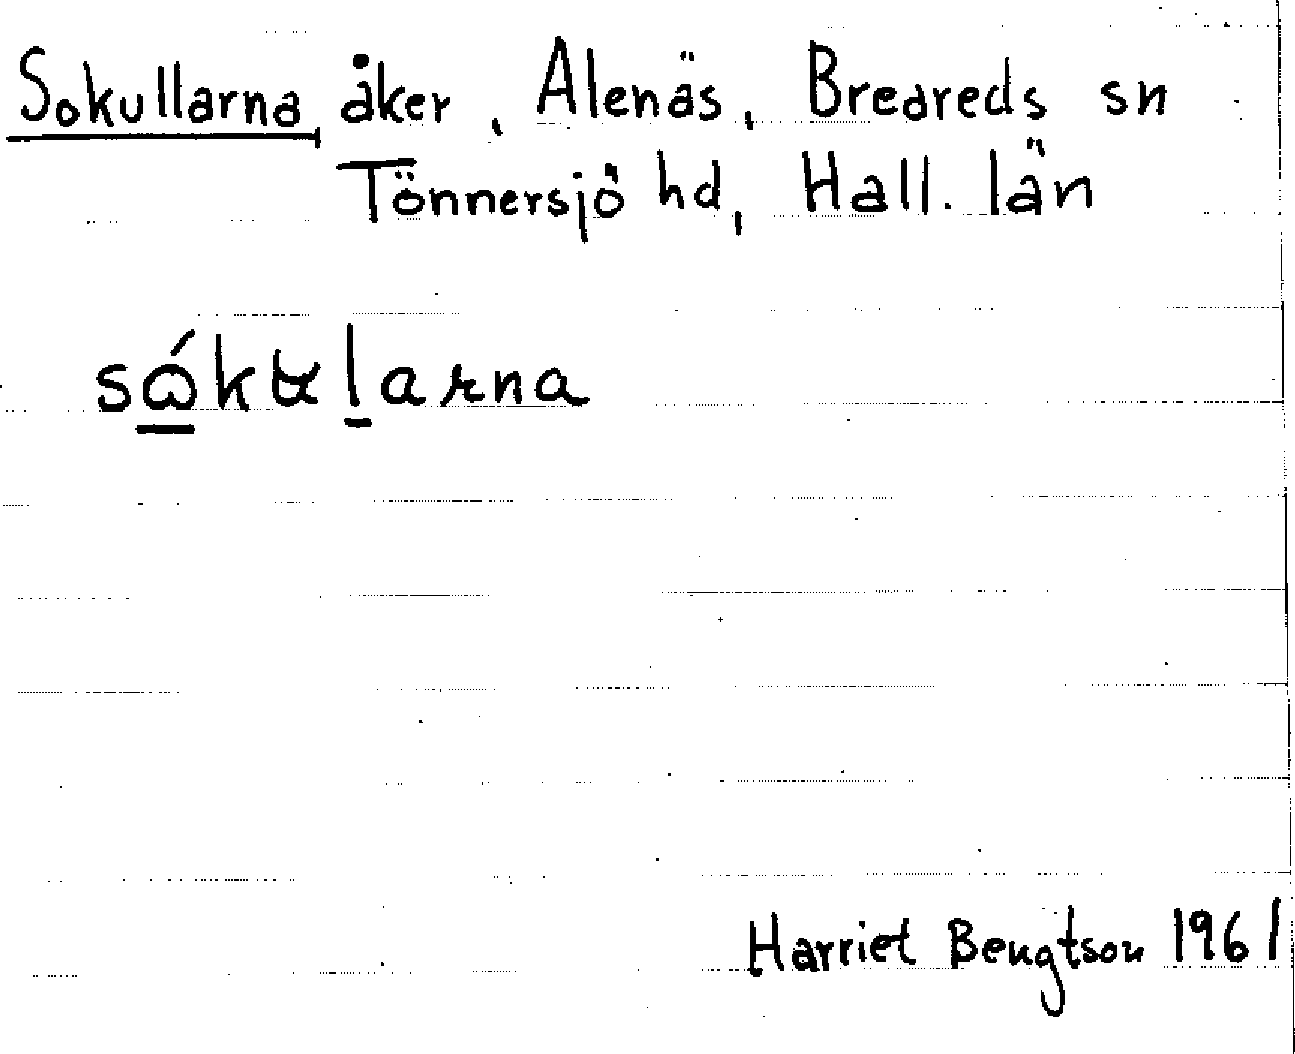 Sokullarna åker, Alenäs, Breareds sn
Tönnersjö hd, Hall. län
Harriet Bengtson 1961